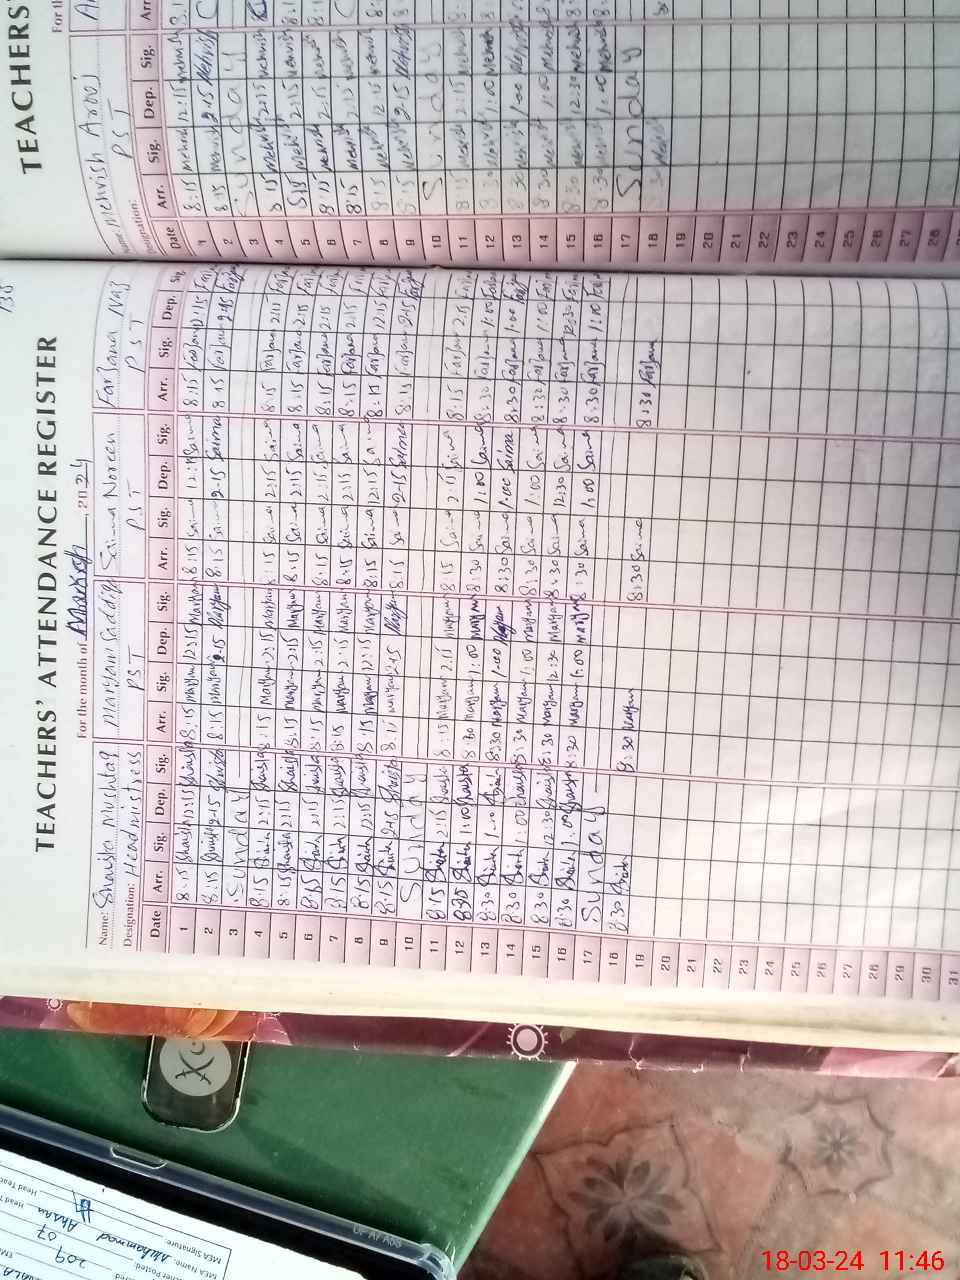 TEACHERS' ATTENDANCE REGISTER
For the month of March, 2024
Name: Shaista Mushtaq Maryam Saddiqa Saima Noreen Farzana Naz
Designation: Headmistress PST PST PST
Date Arr. Sig. Dep. Sig. Arr. Sig. Dep. Sig. Arr. Sig. Dep. Sig. Arr. Sig. Dep. Sig.
1 8:15 Shaista 12:15 Shaista 8:15 Maryam 12:15 Maryam 8:15 Saima 12:15 Saima 8:15 Farzana 12:15
2 8:15 Shaista 2:15 Shaista 8:15 Maryam 2:15 Maryam 8:15 Saima 2:15 Saima 8:15 Farzana 2:15
3 Sunday
4 8:15 2:15 Shaista 8:15 Maryam 2:15 Maryam 8:15 Saima 2:15 Saima 8:15 Farzana 2:15
5 8:15 Shaista 2:15 Shaista 8:15 Maryam 2:15 Maryam 8:15 Saima 2:15 Saima 8:15 Farzana 2:15
6 8:15 2:15 Shaista 8:15 Maryam 2:15 Maryam 8:15 Saima 2:15 Saima 8:15 Farzana 2:15
7 8:15 2:15 Shaista 8:15 Maryam 2:15 Maryam 8:15 Saima 2:15 Saima 8:15 Farzana 2:15
8 8:15 12:15 Shaista 8:15 Maryam 12:15 Maryam 8:15 Saima 12:15 Saima 8:15 Farzana 12:15
9 8:15 2:15 Shaista 8:15 Maryam 2:15 Maryam 8:15 Saima 2:15 Saima 8:15 Farzana 2:15
10 Sunday
11 8:15 2:15 Shaista 8:15 Maryam 2:15 Maryam 8:15 Saima 2:15 Saima 8:15 Farzana 2:15
12 8:30 1:00 Shaista 8:30 Maryam 1:00 Maryam 8:30 Saima 1:00 Saima 8:30 Farzana 1:00
13 8:30 1:00 8:30 Maryam 1:00 Maryam 8:30 Saima 1:00 Saima 8:30 Farzana 1:00
14 8:30 1:00 Shaista 8:30 Maryam 1:00 Maryam 8:30 Saima 1:00 Saima 8:30 Farzana 1:00
15 8:30 12:30 Shaista 8:30 Maryam 12:30 Maryam 8:30 Saima 12:30 Saima 8:30 Farzana 12:30
16 8:30 1:00 Shaista 8:30 Maryam 1:00 Maryam 8:30 Saima 1:00 Saima 8:30 Farzana 1:00
17 Sunday
18 8:30 8:30 Maryam 8:30 Saima 8:30 Farzana
19
20
21
22
23
24
25
26
27
28
29
30
31
TEACHERS'
Name: Mehvish Arooj
Designation: PST
Date Arr. Sig. Dep. Sig. Arr.
1 8:15 Mehvish 12:15 Mehvish
2 8:15 Mehvish 2:15 Mehvish
3 Sunday
4 8:15 Mehvish 2:15 Mehvish
5 8:15 Mehvish 2:15 Mehvish
6 8:15 Mehvish 2:15 Mehvish
7 8:15 Mehvish 2:15 Mehvish
8 8:15 Mehvish 12:15 Mehvish
9 8:15 Mehvish 2:15 Mehvish
10 Sunday
11 8:15 Mehvish 2:15 Mehvish
12 8:30 Mehvish 1:00 Mehvish
13 8:30 Mehvish 1:00 Mehvish
14 8:30 Mehvish 1:00 Mehvish
15 8:30 Mehvish 12:30 Mehvish
16 8:30 Mehvish 1:00 Mehvish
17 Sunday
18 8:30 Mehvish
19
20
21
22
23
24
25
26
27
28
MEA Signature:
MEA Name: Muhammad Ahsan
209 07
18-03-24 11:46